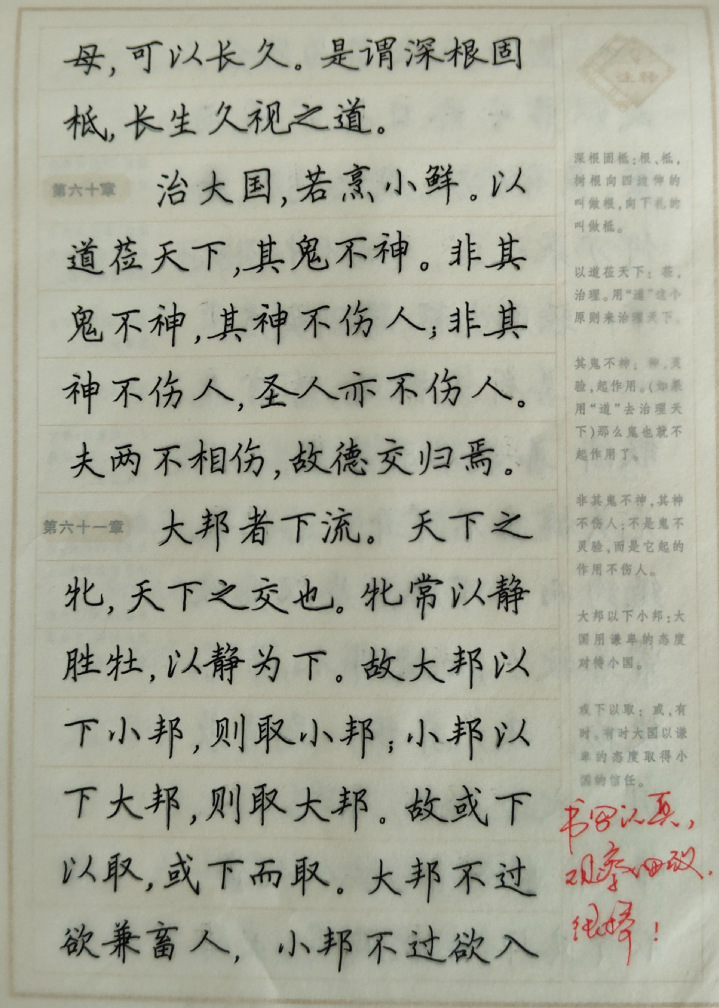 母,可以长久。是谓深根固
柢,长生久视之道。
第六十章
治大国,若烹小鲜。以
道莅天下,其鬼不神。非其
鬼不神,其神不伤人;非其
神不伤人,圣人亦不伤人。
夫两不相伤,故德交归焉。
第六十一章
大邦者下流。天下之
牝,天下之交也。牝常以静
胜牡,以静为下。故大邦以
下小邦,则取小邦;小邦以
下大邦,则取大邦。故或下
以取,或下而取。大邦不过
欲兼畜人,小邦不过欲入
注释
深根固柢:根、柢,
树根向四边伸的
叫做根,向下扎的
叫做柢。
以道莅天下:莅,
治理。用“道”这个
原则来治理天下。
其鬼不神:神,灵
验,起作用。(如果
用“道”去治理天
下)那么鬼也就不
起作用了。
非其鬼不神,其神
不伤人:不是鬼不
灵验,而是它起的
作用不伤人。
大邦以下小邦:大
国用谦卑的态度
对待小国。
或下以取:或,有
时。有时大国以谦
卑的态度取得小
国的信任。
书写认真,
观察细致.
很棒!